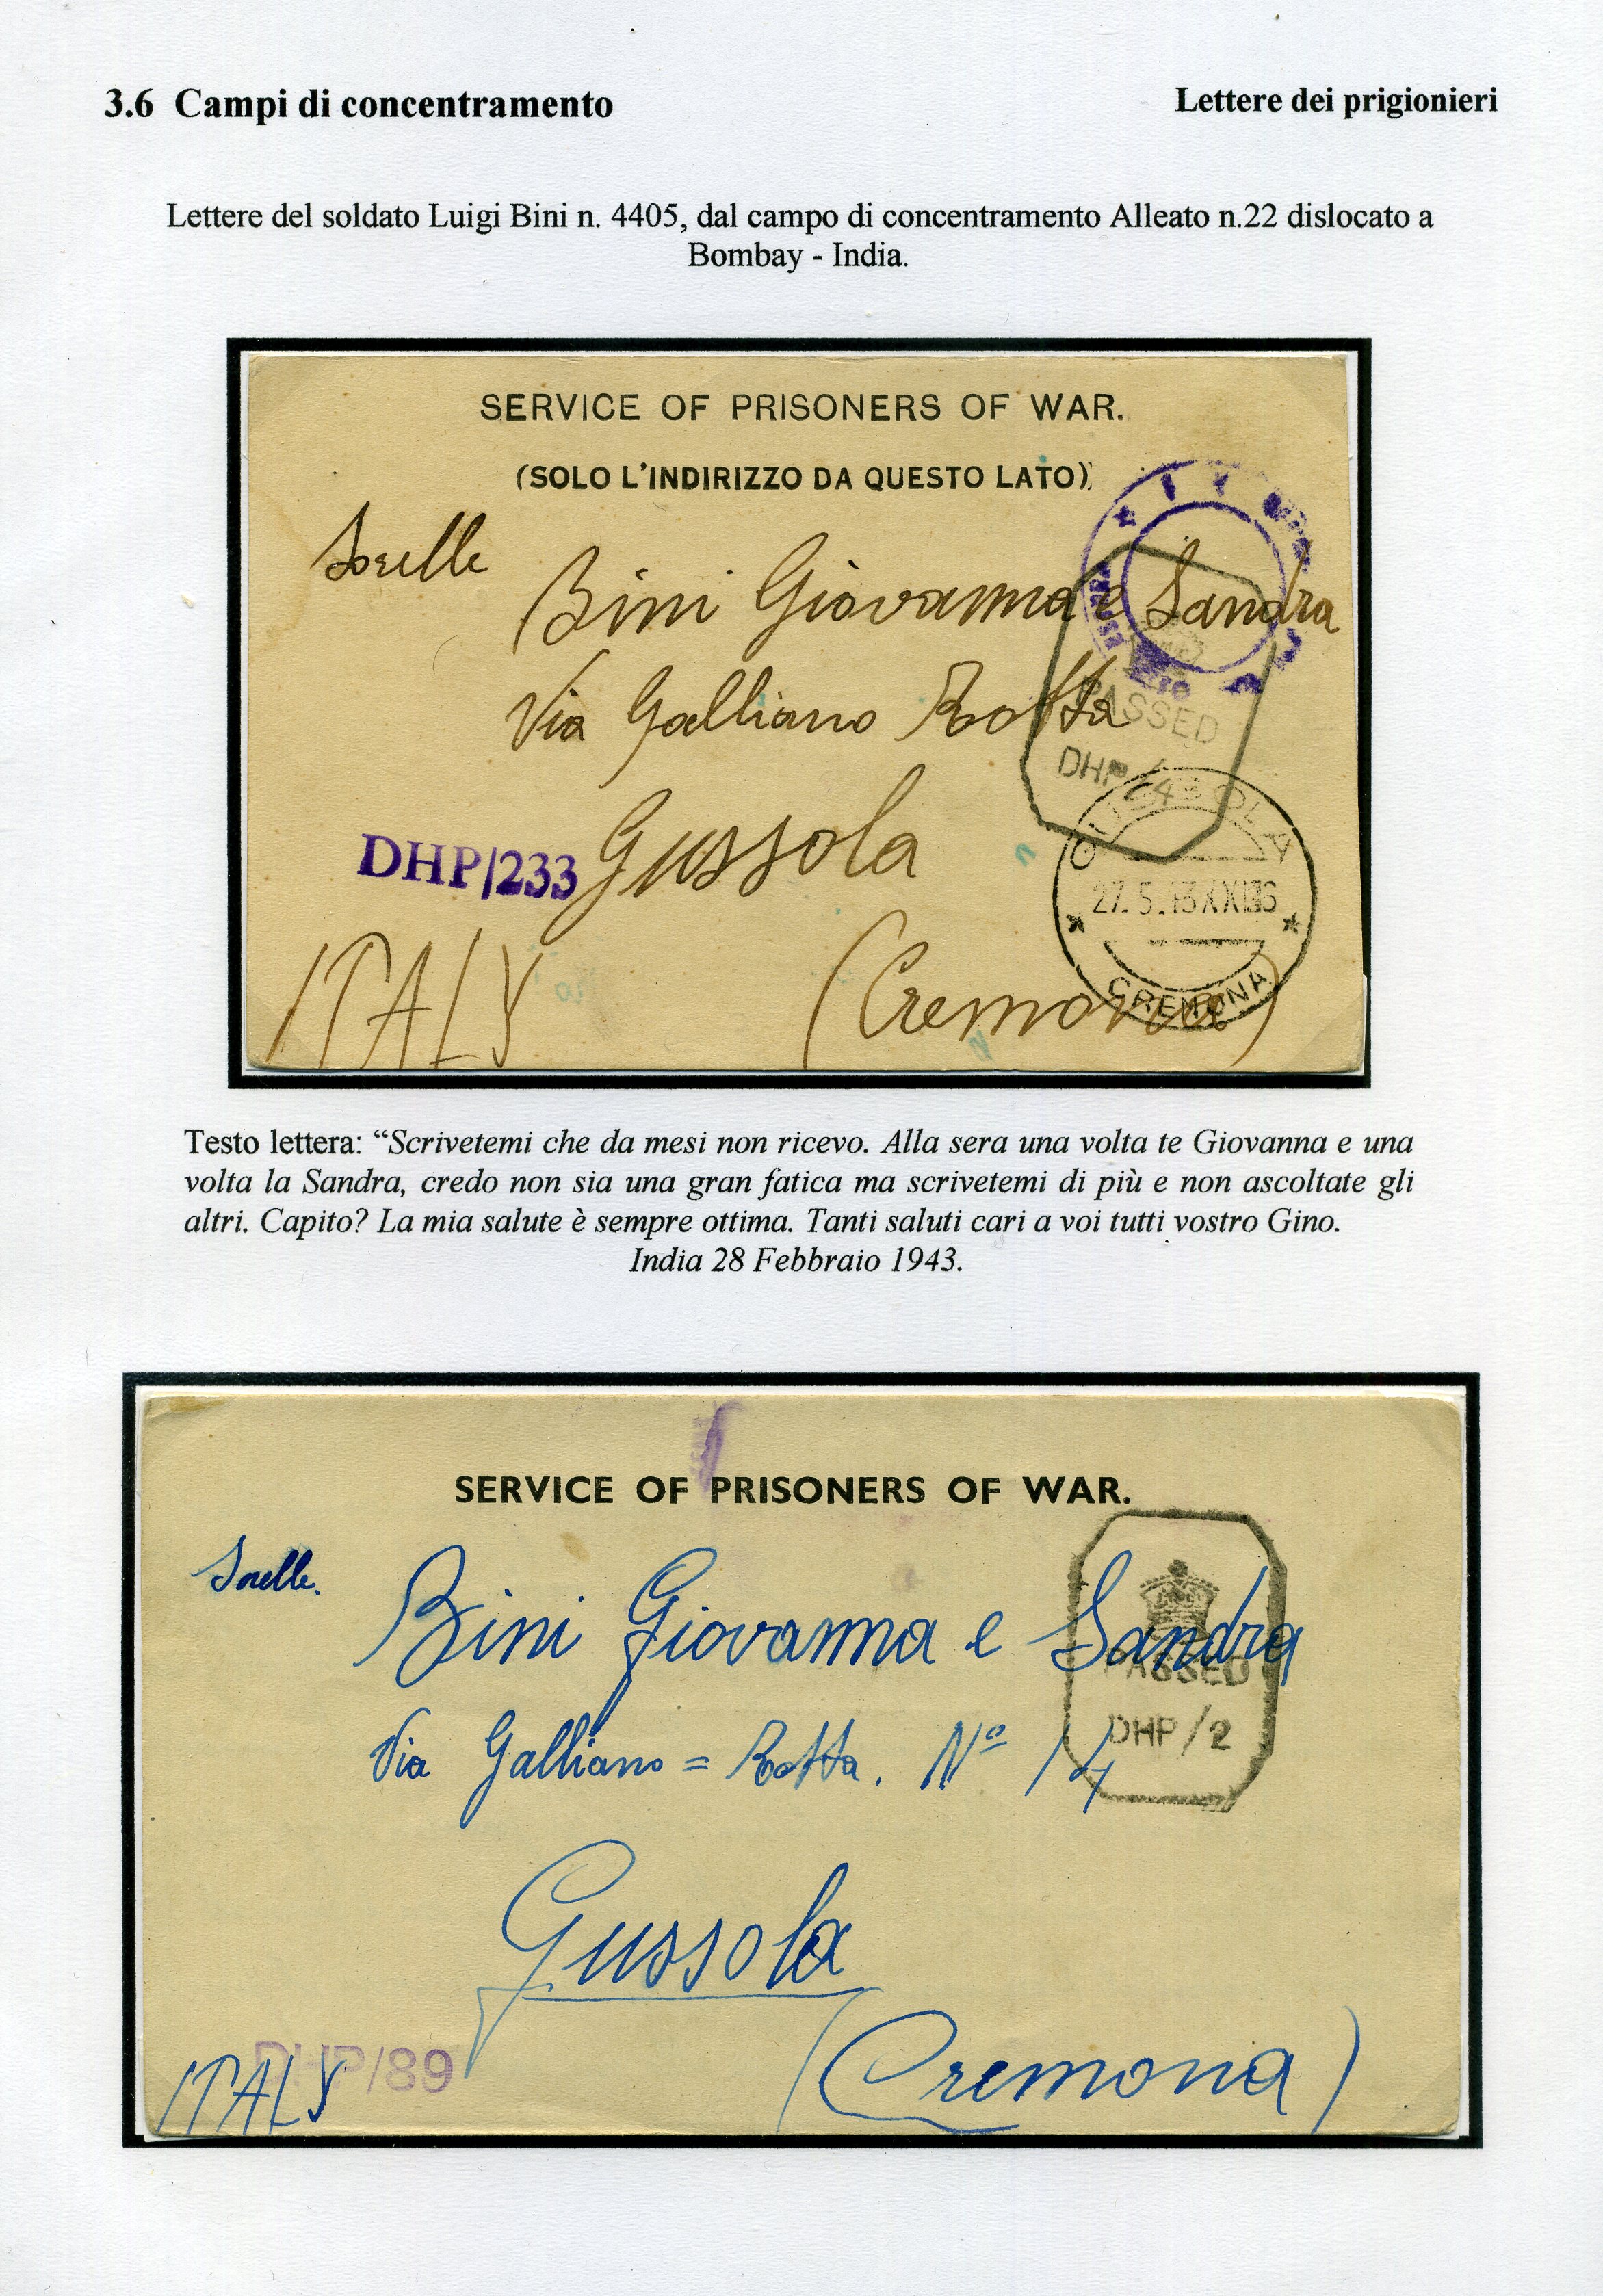 3.6 Campi di concentramento
Lettere dei prigionieri
Lettere del soldato Luigi Bini n. 4405, dal campo di concentramento Alleato n.22 dislocato a
Bombay - India.
SERVICE OF PRISONERS OF WAR.
(SOLO L'INDIRIZZO DA QUESTO LATO)
Sorelle
Bini Giovanna e Sandra
Via Galliano Rotta
PASSED
DHP/4
Gussola
DHP/233
GUSSOLA
27.5.43 XXI
CREMONA
ITALY
(Cremona)
Testo lettera: “Scrivetemi che da mesi non ricevo. Alla sera una volta te Giovanna e una
volta la Sandra, credo non sia una gran fatica ma scrivetemi di più e non ascoltate gli
altri. Capito? La mia salute è sempre ottima. Tanti saluti cari a voi tutti vostro Gino.
India 28 Febbraio 1943.
SERVICE OF PRISONERS OF WAR.
Sorelle.
Bini Giovanna e Sandra
PASSED
DHP/2
Via Galliano = Rotta. Nº 14
Gussola
DHP/89
ITALY
(Cremona)